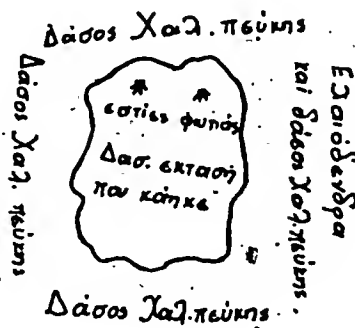 Δάσος Χαλ. πεύκης
Δάσος Χαλ. πεύκης
εστίες φωτιάς
Δασ. εκταση
που κάηκε
Ελαιόδενδρα
και δάσος Χαλ. πεύκης.
Δάσος Χαλ. πεύκης